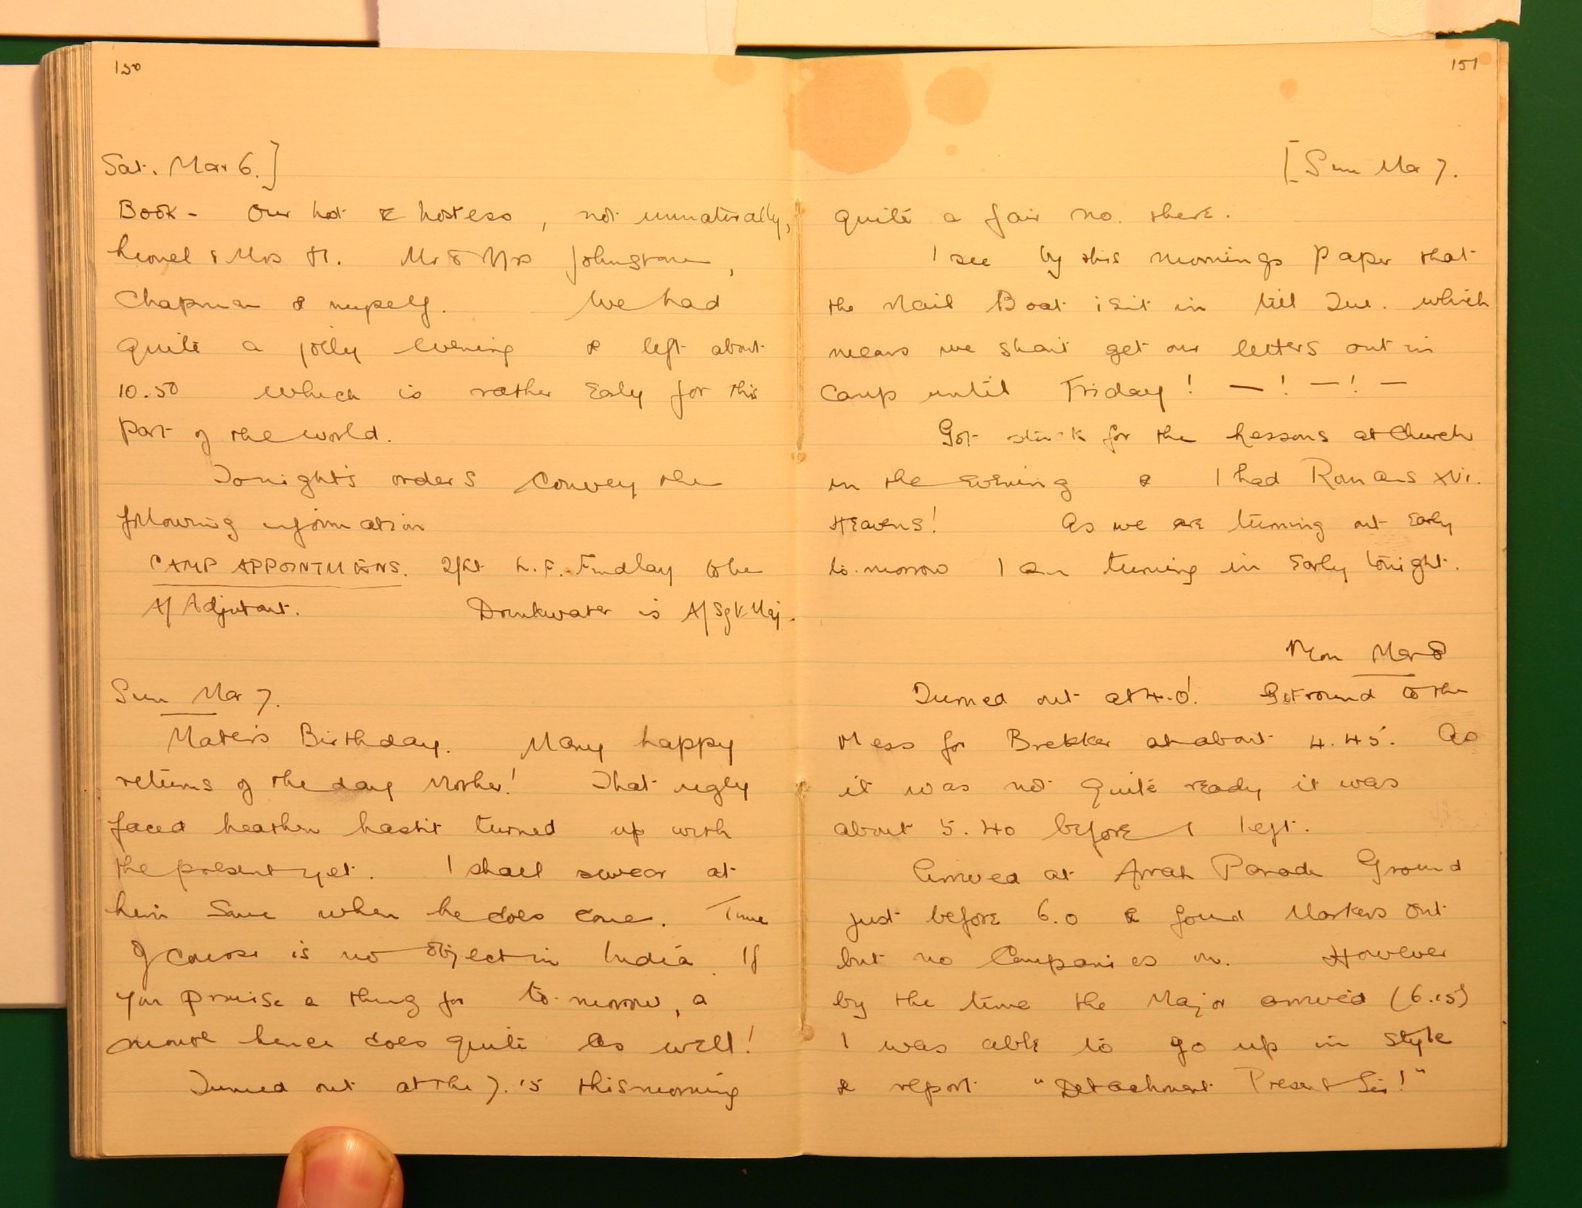 150
Sat. Mar 6.]
Book - Our host & hostess, not unnaturally,
Lionel & Mrs H. Mr & Mrs Johnstone,
Chapman & myself. We had
quite a jolly evening & left about
10.50 which is rather Early for this
part of the world.
Tonight's orders convey the
following information
CAMP APPOINTMENTS. 2/Lt L.F. Findlay to be
A/Adjutant. Drinkwater is A/Sgt. Maj.
Sun Mar 7.
Mater's Birthday. Many happy
returns of the day Mother! That ugly
faced heathen hasn't turned up with
the present yet. I shall swear at
him some when he does come. Time
of course is no object in India. If
you promise a thing for to-morrow, a
month hence does quite as well!
Turned out at the 7.15 this morning
151
[Sun Mar 7.
quite a fair no. there.
I see by this mornings paper that
the Mail Boat isn't in till Tue. which
means we shan't get our letters out in
camp until Friday! — ! — ! —
Got stuck for the Lessons at Church
in the Evening & I had Romans XVI.
HEavens! As we are turning out Early
to-morrow I am turning in Early tonight.
Mon Mar 8
Turned out at 4.0! Got round to the
Mess for Brekker at about 4.45. As
it was not quite ready it was
about 5.40 before I left.
Arrived at Arrah Parade Ground
just before 6.0 & found Markers out
but no Companies on. However
by the time the Major arrived (6.15)
I was able to go up in style
& report "Detachment Present Sir!"